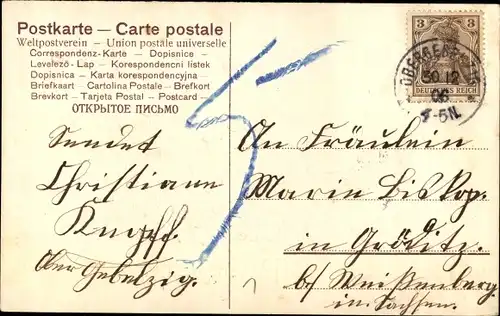 Postkarte — Carte postale
Weltpostverein – Union postale universelle
Correspondenz-Karte – Dopisnice –
Levelező-Lap – Korespondenční listek
Dopisnica – Karta korespondencyjna –
Briefkaart – Cartolina Postale – Brefkort
Brevkort – Tarjeta Postal – Postcard –
ОТКРЫТОЕ ПИСЬМО
3 3
DEUTSCHES REICH
30 12
4-5N.
5
Sendet
Christiane
Knopff.
Ober Gebelzig.
An Fräulein
Marie Biskop.
in Gröditz.
b/ Weißenberg
in Sachsen.